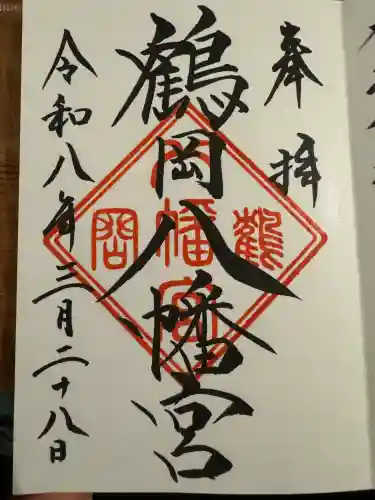 奉拝
鶴岡八幡宮
鶴岡
八幡宮
令和八年三月二十八日